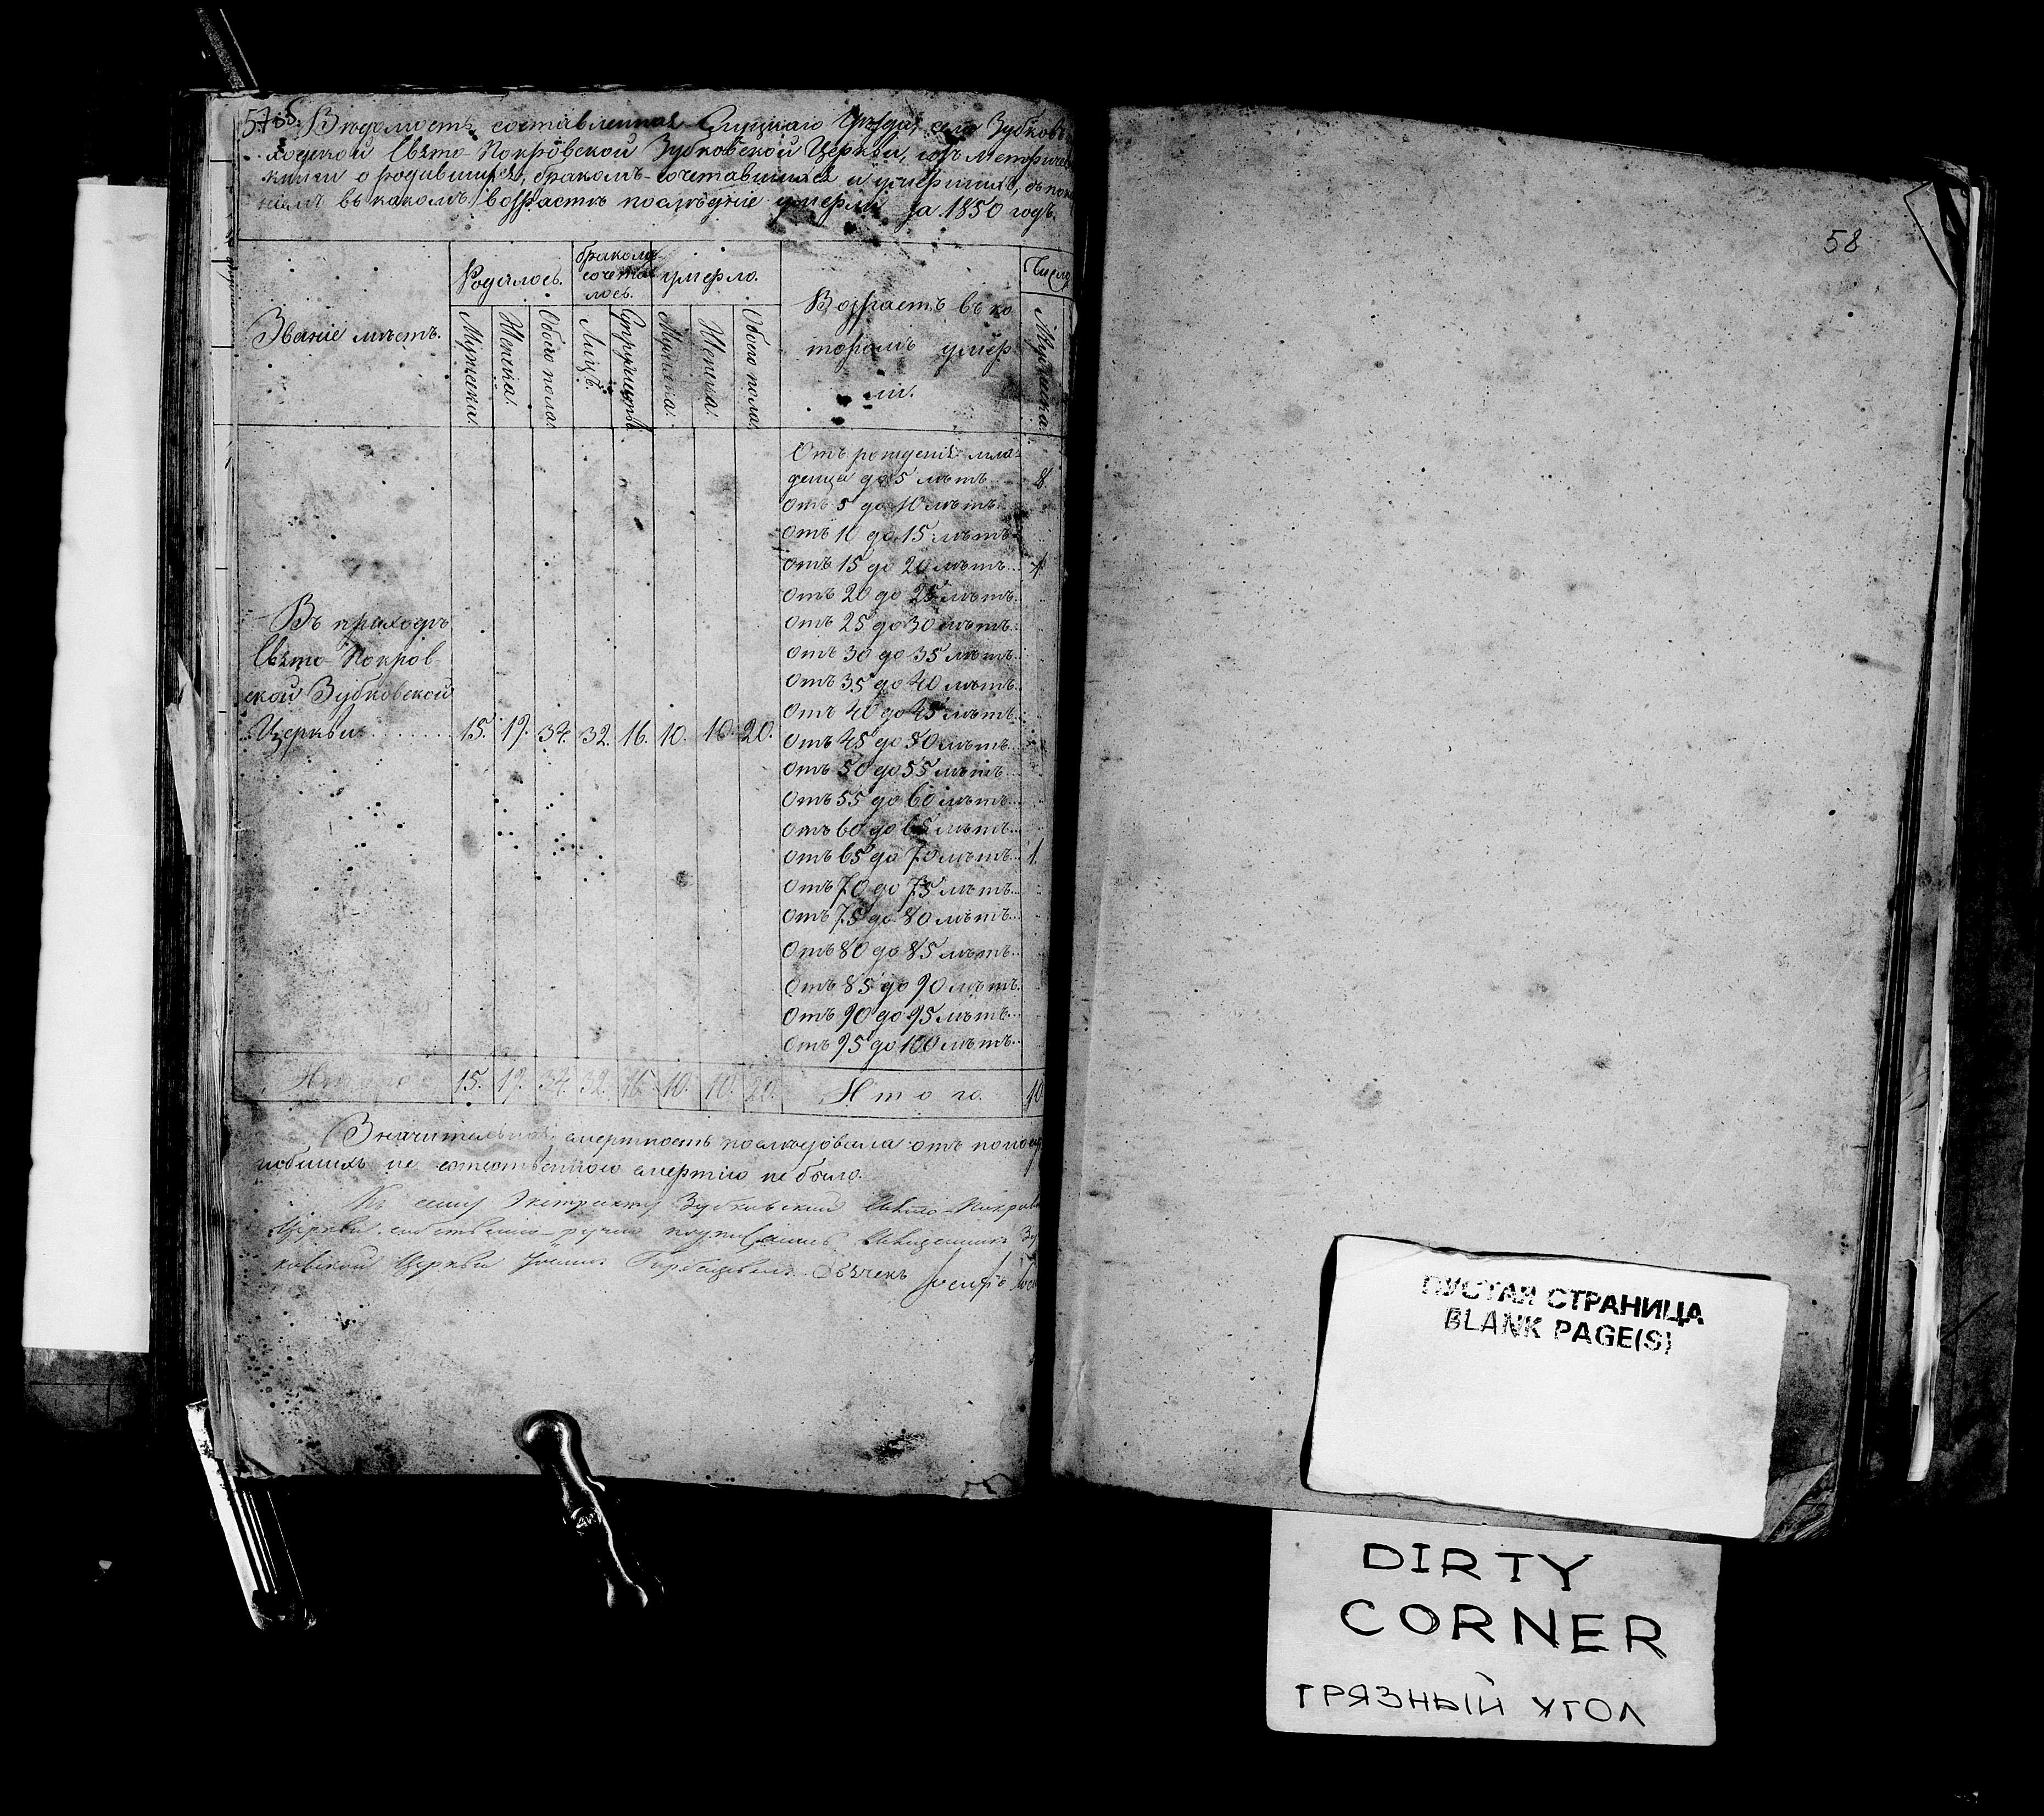 57об.
Вѣдомость составленная Слуцкаго Уѣзда, села Зубков
ходской Свято-Покровской Зубковской Церкви, изъ Метричес
книги о родившихся, бракомъ-сочетавшихся и умершихъ, съ пока
ніемъ въ какомъ возрастѣ послѣдніе умерли за 1850 годъ.
58
Званіе мѣстъ.
Родилось.
бракомъ
сочета
лось.
умерло.
Возрастъ въ ко
торомъ умер
ли.
Число
Мужеска.
Женска.
Обоего пола
Лицъ.
Супружествъ.
Мужеска.
Женска.
Обоего пола
Мужеска.
Отъ рожденія мла-
денца до 5 лѣтъ 8
Отъ 5 до 10 лѣтъ
Отъ 10 до 15 лѣтъ
Отъ 15 до 20 лѣтъ 1.
Отъ 20 до 25 лѣтъ
Отъ 25 до 30 лѣтъ
Отъ 30 до 35 лѣтъ
Отъ 35 до 40 лѣтъ
Отъ 40 до 45 лѣтъ
Отъ 45 до 50 лѣтъ
Отъ 50 до 55 лѣтъ
Отъ 55 до 60 лѣтъ
Отъ 60 до 65 лѣтъ
Отъ 65 до 70 лѣтъ 1.
Отъ 70 до 75 лѣтъ
Отъ 75 до 80 лѣтъ
Отъ 80 до 85 лѣтъ
Отъ 85 до 90 лѣтъ
Отъ 90 до 95 лѣтъ
Отъ 95 до 100 лѣтъ
Въ приходѣ
Свято-Покров
ской Зубковской
Церкви 15. 19. 34. 32. 16. 10. 10. 20.
Итого 15. 19. 34. 32. 16. 10. 10. 20. Итого 10
Значительная смертность послѣдовала отъ
не естественною смертію не было.
Къ сему Экстракту Зубковской Свято-Покров
Церкви собственно-ручно подписались Священникъ Зу
ковской Церкви Іоаннъ Дьячекъ Іосифъ
ПУСТАЯ СТРАНИЦА
BLANK PAGE(S)
DIRTY
CORNER
ГРЯЗНЫЙ УГОЛ